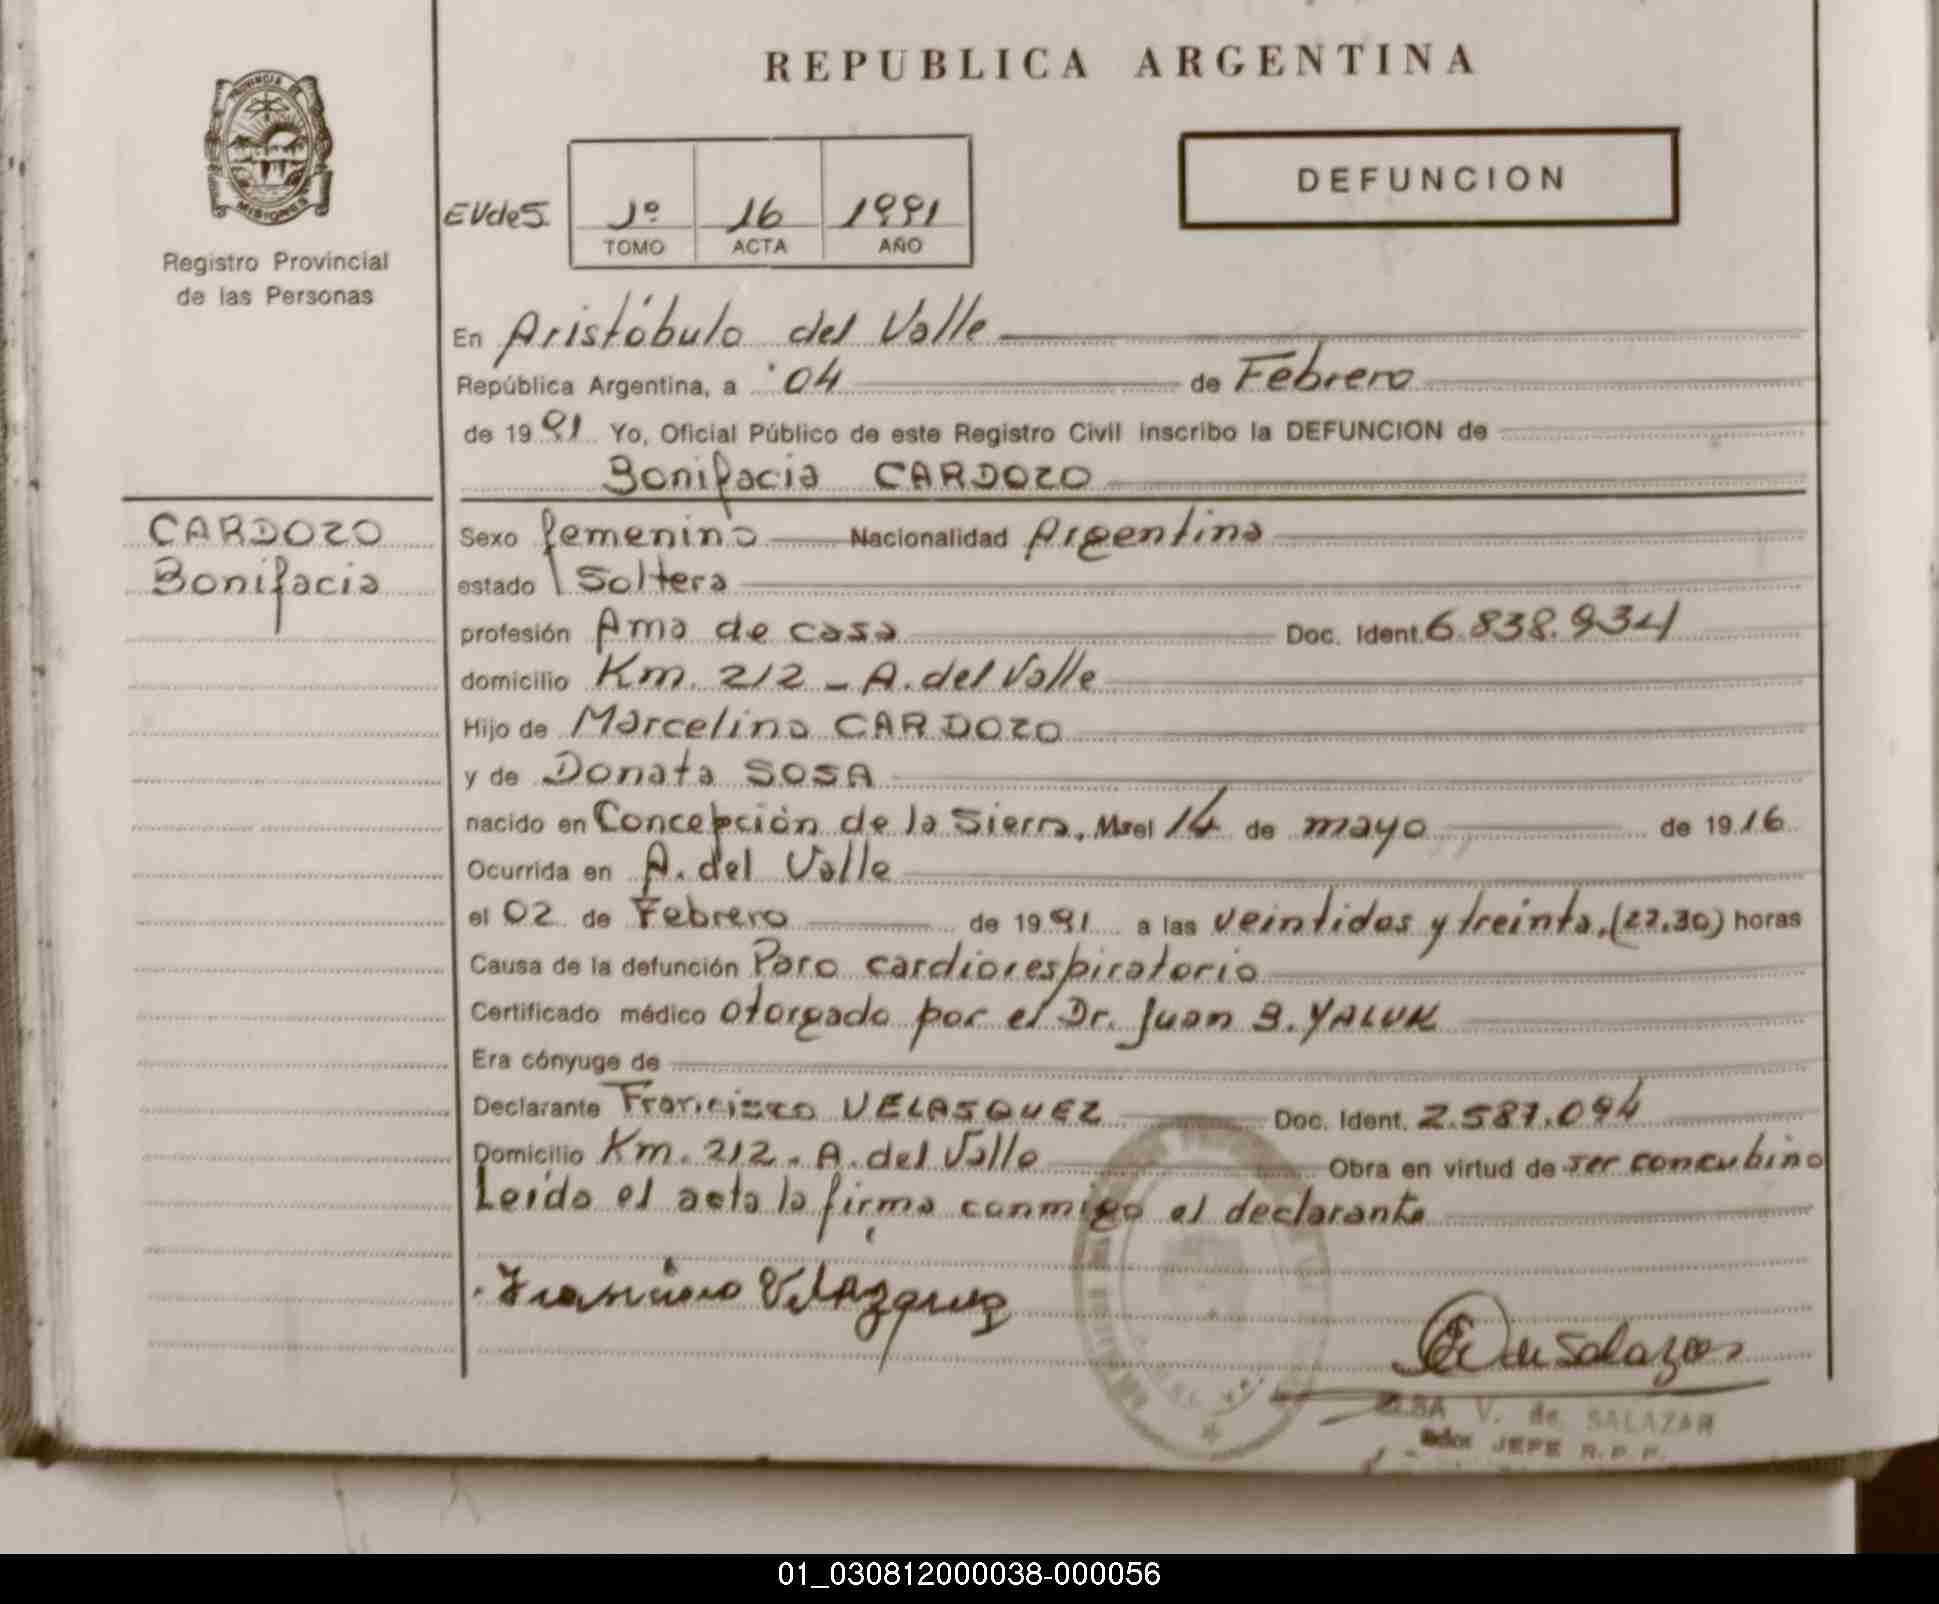 REPUBLICA ARGENTINA
PROVINCIA DE
MISIONES
Registro Provincial
de las Personas
DEFUNCION
EVdeS. 1º 16 1991
TOMO ACTA AÑO
En Aristóbulo del Valle
República Argentina, a 04 de Febrero
de 1991 Yo, Oficial Público de este Registro Civil inscribo la DEFUNCION de
Bonifacia CARDOZO
CARDOZO
Bonifacia
Sexo femenino Nacionalidad Argentina
estado Soltera
profesión Ama de casa Doc. Ident. 6.838.934
domicilio Km. 212 - A. del Valle
Hijo de Marcelino CARDOZO
y de Donata SOSA
nacido en Concepción de la Sierra, Mnes el 14 de mayo de 1916
Ocurrida en A. del Valle
el 02 de Febrero de 1991 a las veintidos y treinta, (22.30) horas
Causa de la defunción Paro cardiorespiratorio
Certificado médico otorgado por el Dr. Juan B. YALUK
Era cónyuge de
Declarante Francisco VELASQUEZ Doc. Ident. 2.587.094
Domicilio Km. 212 - A. del Valle Obra en virtud de ser concubino
Leída el acta la firma conmigo el declarante
Francisco Velazquez
de Salazar
ELSA V. de SALAZAR
JEFE R.P.P.
01_030812000038-000056